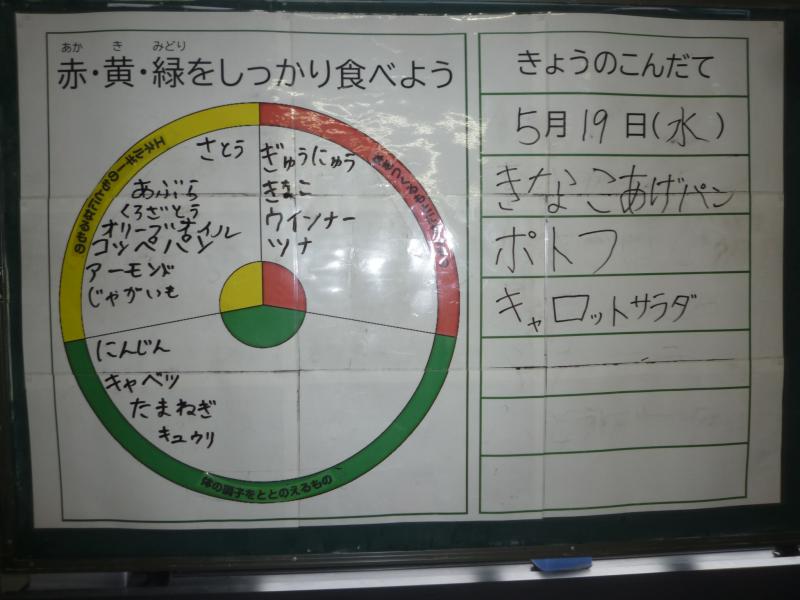 あか き みどり
赤・黄・緑をしっかり食べよう
エネルギーのもとになるもの
さとう
あぶら
くろざとう
オリーブオイル
コッペパン
アーモンド
じゃがいも
ぎゅうにゅう
きなこ
ウインナー
ツナ
にんじん
キャベツ
たまねぎ
キュウリ
体の調子をととのえるもの
きょうのこんだて
5月19日(水)
きなこあげパン
ポトフ
キャロットサラダ